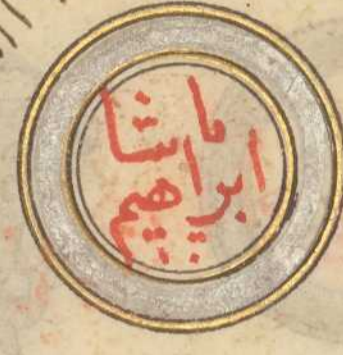 ابراهيم
پاشا